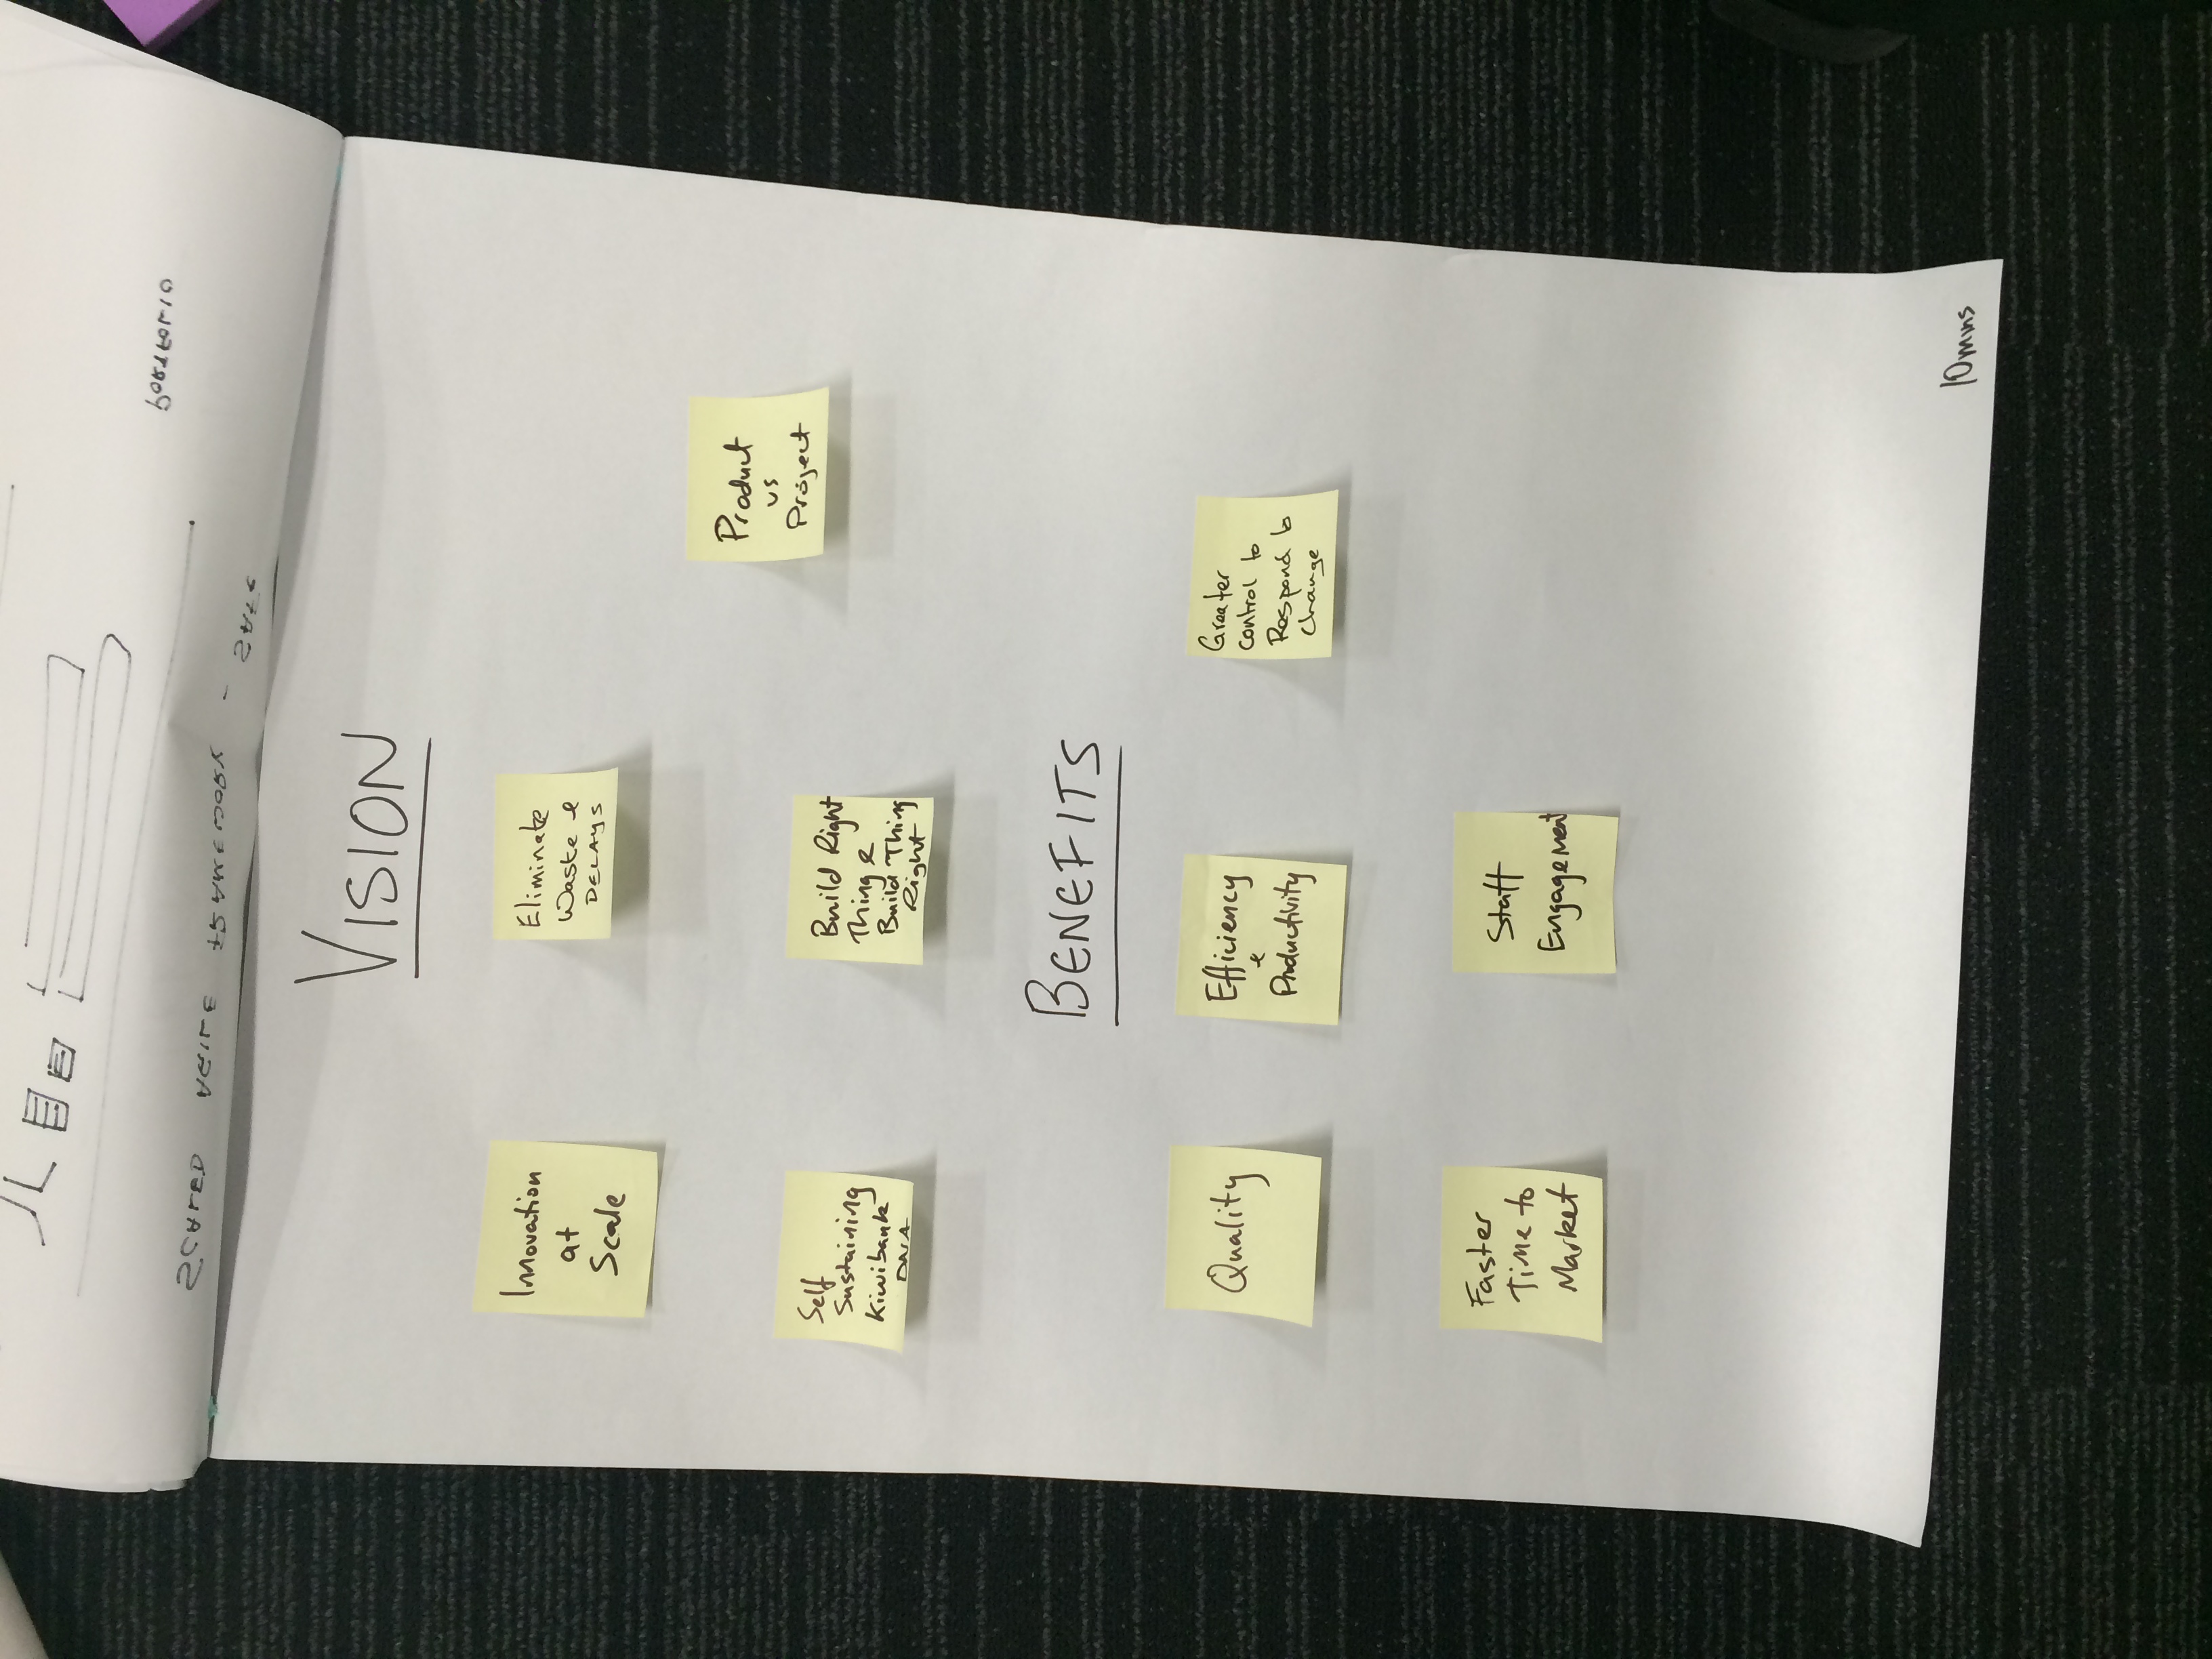 PORTFOLIO
SCALED AGILE FRAMEWORK - SAFe
VISION
Innovation
at
Scale
Eliminate
Waste &
DELAYS
Product
vs
Project
Self
Sustaining
Kiwibank
DNA
Build Right
Thing &
Build Thing
Right
BENEFITS
Quality
Efficiency
&
Productivity
Greater
control to
Respond to
change
Faster
Time to
Market
Staff
Engagement
10mins